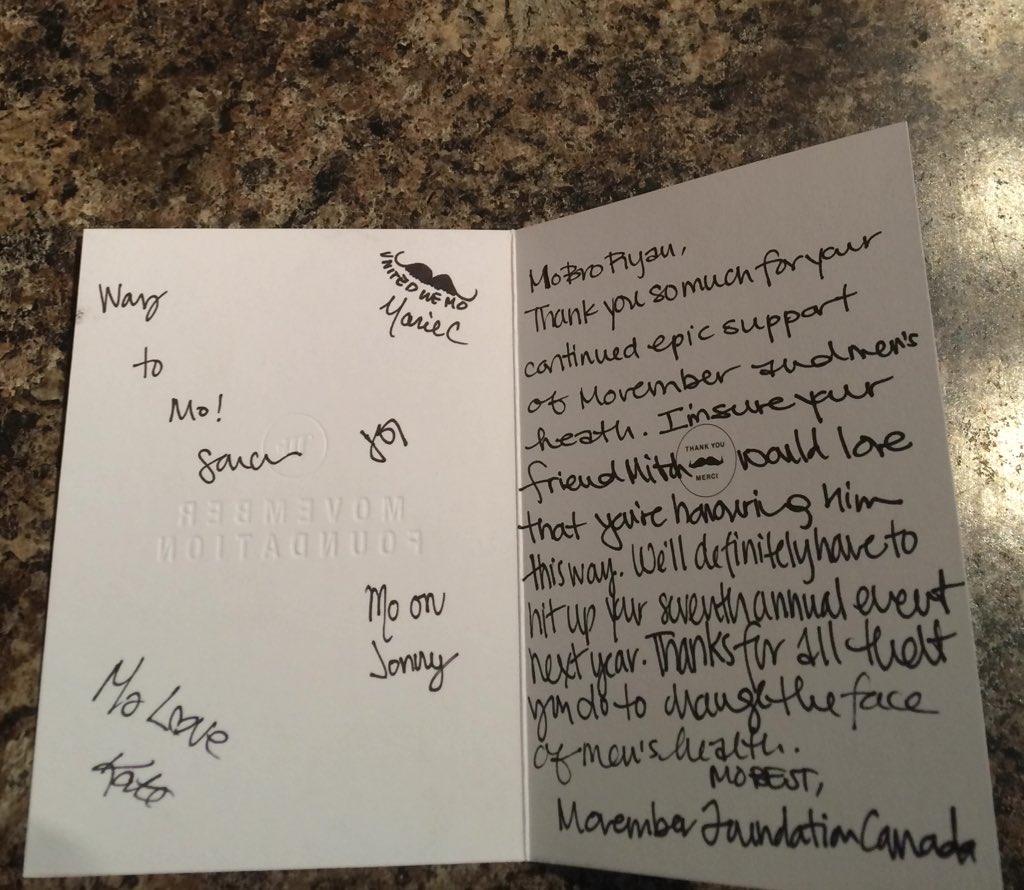 Way
to
Mo!
UNITED WE MO
Marie C
MOVEMBER
FOUNDATION
Mo on
Jonny
Mo Love
Kate
MoBro Ryan,
Thank you so much for your
continued epic support
of Movember and men's
heath. I'm sure your
friend Mitch would love
THANK YOU
MERCI
that you're honouring him
this way. We'll definitely have to
hit up your seventh annual event
next year. Thanks for all that
you do to change the face
of men's health.
MO BEST,
Movember Foundation Canada